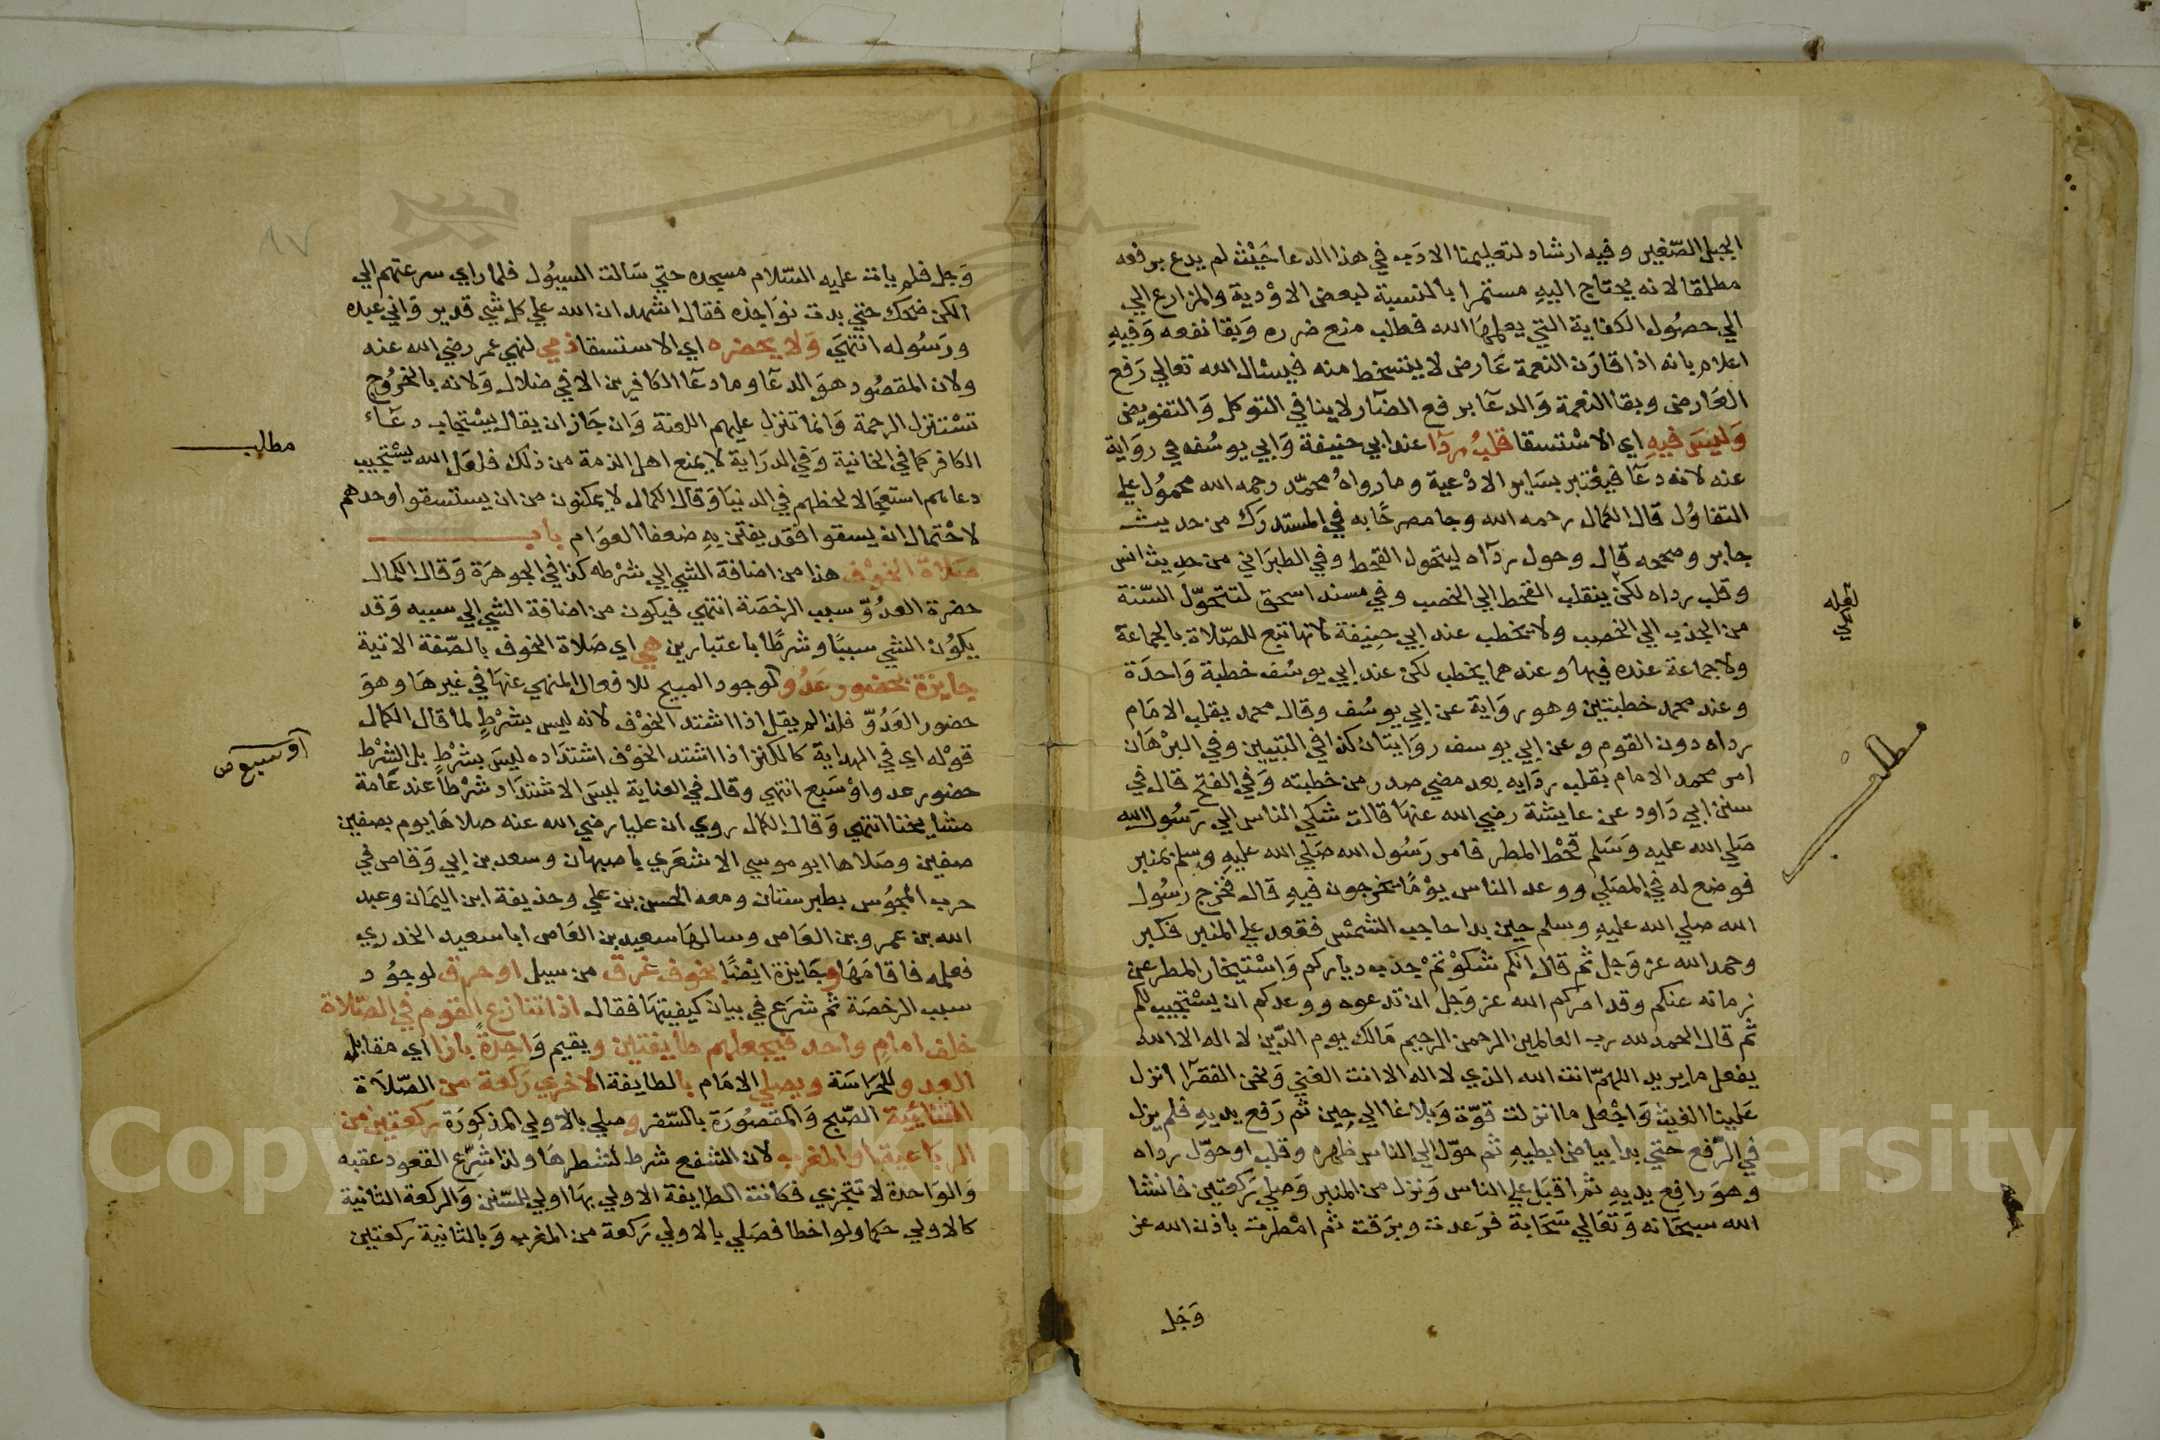 الجبل الصغير وفيه ارشاد لتعليمنا الادب في هذا الدعا حَيْث لم يدع برفعه
مطلقا لانه يحتاج اليه مستمرا بالنسبة لبعض الاوْدية والمزارع الي
الي حصُول الكفاية التي يعلمهَا الله فطلب منع ضرره وَبقا نفعه وَفيهِ
اعلام بانه اذا قارَن النعمة عَارض لا يتسخط منه فيسئال الله تعالي رَفع
العَارض وبقا النعمة وَالدعآ برفع الضآر لا ينافي التوكل وَالتفويض
وَليسَ فيهِ اي الاسْتسقا قلبُ ردآ عند ابي حنيفة وَابي يوسُف في روَاية
عنه لانه دعَآ فيعْتبر بسَاير الادْعية وما رواهُ محمّد رحمه الله محموُل علي
التفاوُل قال الكمال رحمه الله وجا مصرحًا به في المستدرَك من حديث
جابر وصححه قال وحول ردآه ليتحول القحط وفي الطبرَاني من حدِيث انس
وقلب رداه لكيْ ينقلب القحط الي الخصب وفي مسند اسحق لتتحوّل السّنة
من الجدب الي الخصِب ولا يخطب عند ابي حنِيفة لانها تتبع للصّلاة بالجماعة
ولا جماعة عنده فيهَا وعندهما يخطب لكن عند ابي يوسُف خطبة وَاحدَة
وعند محمد خطبتين وهو روَاية عن ابي يوسُف وقال محمد يقلب الامَام
رداه دون القوم وعن ابي يوسف روَايتان كذا في التبيين وفي البرْهَان
امر محمد الامام بقلب ردَايه بعد مضي صدر من خطبته وَفي الفتح قال في
سنن ابي دَاود عن عايشة رضي الله عنهَا قالت شكي الناس الي رَسُول الله
صَلي الله عليه وَسَلم قحْط المطر فامر رَسُول الله صَلي الله عليهِ وسلم بمنبر
فوضع له في المصَلي ووعد الناس يوْمًا يخرجون فيهِ قال فخرج رسُول
الله صلي الله عليهِ وسلم حِين بدا حاجب الشمْس فقعد علي المنبر فكبر
وحمد الله عز وَجَل ثم قال انكم شكوْتمْ جَدب دياركم وَاسْتيخار المطر عن
زمانه عنكم وقد امَركم الله عز وَجَل ان تدعوه ووعدكم ان يسْتجيب لكم
ثم قال الحمد لله رب العالمين الرحمن الرحيم مَالك يوم الدّين لا اله الا الله
يفعل ما يريد اللهمّ انت الله الذي لا اله الا انت الغني وَنحن الفقرَآ انزل
عَلينا الغيث وَاجْعل ما انزلت قوّة وَبلاغا الي حِين ثم رَفع يديهِ فلم يزل
في الرّفع حتي بدا بياض ابطيهِ ثم حوّل الي الناس ظهره وقلب اوحوّل رداه
وهوَ رافع يديهِ ثم اقبَل علي الناس وَنزل من المنبر وَصلي رَكعتين فانشا
الله سبحَانه وَتعَالي سَحَابة فرَعدت وبرَقت ثم امْطرت باذن الله عز
وَجَل
لعله
كي
مطلب
وَجَل فلم يات عليه السّلام مسجده حتي سَالت السيوُل فلما راي سرعتهم الي
الكن ضحك حتي بدت نوَاجذه فقال اشهد ان الله علي كل شي قدير وَاني عبده
ورَسُوله انتهَي وَلا يحضره اي الاستسقا ذمي لنهي عمر رضي الله عنه
ولان المقصُود هوَ الدعآ وما دعآ الكافرين الا في ضلال وَلانه بالخروُج
تسْتنزل الرحمة وَانما تنزل عليهم اللعنة وَان جَاز ان يقال يسْتجاب دعَآء
الكافر كما في الخانية وَفي الدرَاية لا يمنع اهل الذمة من ذلك فلعَل الله يسْتجيب
دعاهم استعجَالا لحظهم في الدنيَا وَقال الكمال لا يمكنون من ان يستسقوا وحدهم
لاحْتمال ان يسقوا فقد يفتن بهِ ضعفا العوَام باب
صَلاة الخوْف هذا من اضافة الشي الي شرْطه كذا في الجوهَرَة وَقال الكمال
حضرة العدُوّ سبب الرخصَة انتهي فيكون من اضافة الشي الي سببه وَقد
يكوُن الشي سببًا وشرطًا باعتبارين هي اي صَلاة الخوف بالصّفة الاتية
جايزة بحضور عدُو لوجود المبيح للافعال المنهي عنهَا في غيرهَا وهوَ
حضور العَدُوّ فلذا لم يقل اذا اشتد الخوْف لانه ليس بشرْطٍ لما قال الكمال
قوْله اي في الهدَاية كالكنز اذا اشتد الخوْف اشتدَاده ليسَ بشرْطٍ بل الشرْط
حضور عدو اوْ سَبع انتهي وقال في العناية ليسَ الاشتدَاد شرْطاً عند عَامة
مشايخنا انتهي وَقال الكمال روي ان عليا رضي الله عنه صلاهَا يوم بصفين
صفين وصَلاهَا ابو موسي الاشعَري باصبهان وسعد بن ابي وَقاص في
حرب المجوُس بطبرستان ومعه الحسن بن علي وحذيفة ابن اليمَان وعبد
الله بن عمرو بن العَاص وسالهَا سعيد بن العَاص ابا سعيد الخدري
فعلمه فاقامَهَا وجَايزة ايْضًا بخوف غرق من سيل او حرق لوجوُد
سبب الرخصَة ثم شرَع في بيان كيفيتهَا فقال اذا تنازع القوم في الصّلاة
خلف امامٍ واحد فيجعلهم طايفتين ويقيم وَاحِدةً بازا اي مقابلة
العدو للحرَاسَة ويصلي الامَام بالطايفة الاخري رَكعة من الصّلاَة
الثنائية الصّبح وَالمقصُورَة بالسّفر وصلي بالاولي المذكورَة ركعتين من
الرباعية او المغرب لان الشفع شرط لشطرهَا ولذا شرّع القعود عقبه
وَالوَاحدة لا تتجزي فكانت الطايفة الاولي بهَا اولي للسّبق وَالركعة الثانية
كالاولي حكما ولو اخطا فصَلي بالاولي رَكعة من المغرب وَبالثانية ركعتين
٨٧
مطلب
او سبع ص